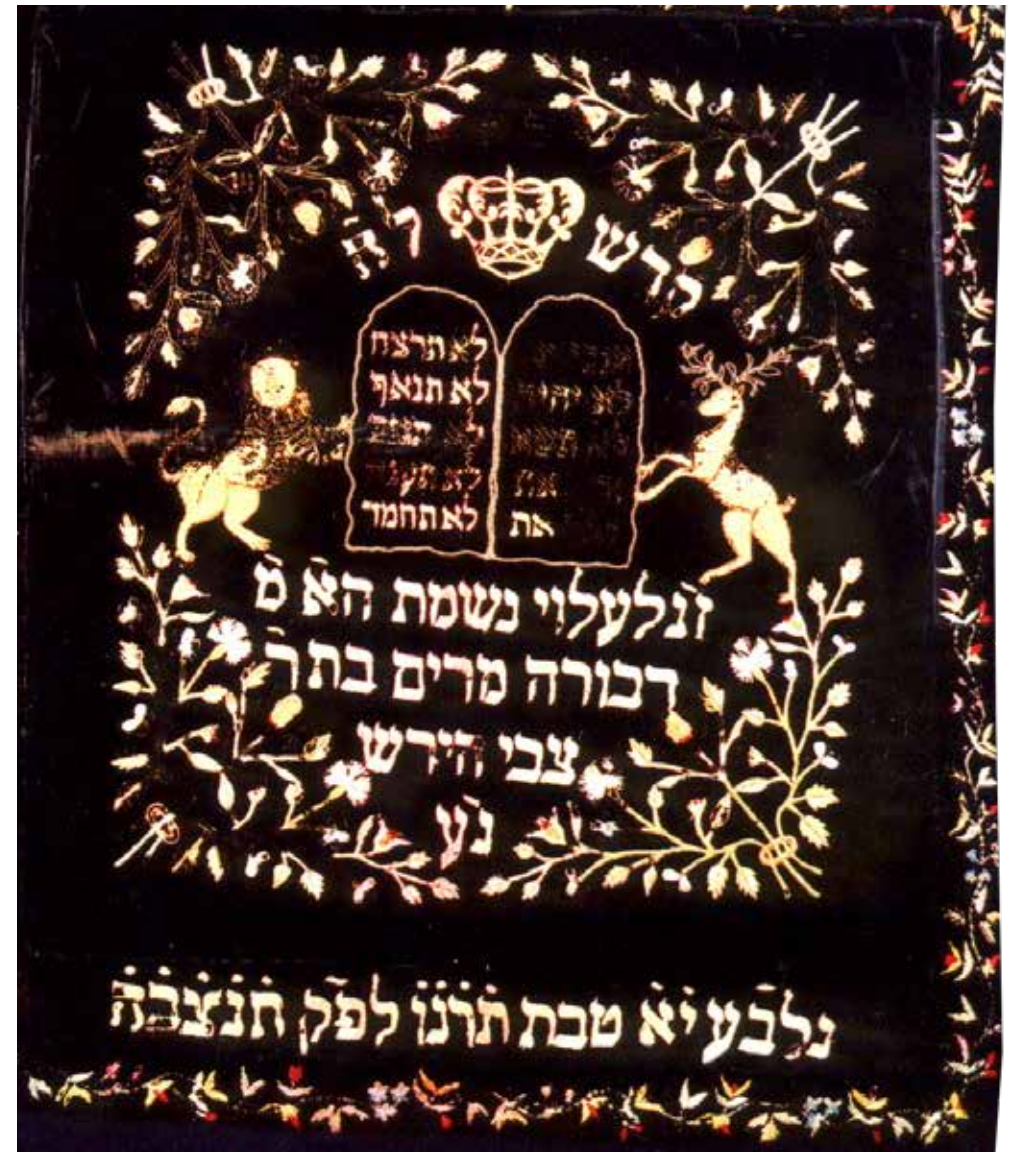 קדש לה
אנכי
לא יהיה
לא תשא
את
את
לא תרצח
לא תנאף
לא תגנב
לא תענה
לא תחמד
ז̇נ לעלוי נשמת הא̇ מ̇
דבורה מרים בת ר̇
צבי הירש
נ̇ע
נלב̇ע י̇א̇ טבת ת̇ר̇נ̇ו̇ לפ̇ק ת̇נ̇צ̇ב̇ה̇